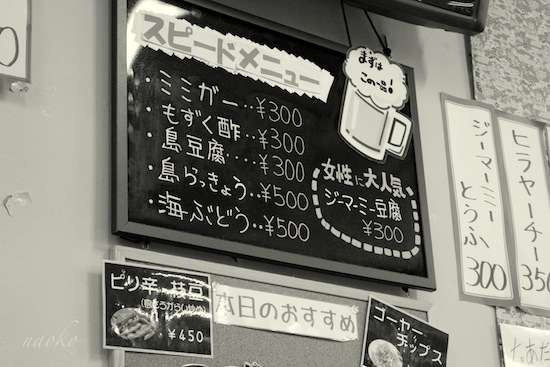 スピードメニュー
まずは
この一品!
・ミミガー‥¥300
・もずく酢‥¥300
・島豆腐‥‥¥300
・島らっきょう‥¥500
・海ぶどう‥¥500
女性に大人気
ジーマーミー豆腐
¥300
ジーマーミーとうふ 300
ヒラヤーチー 350
ピリ辛 枝豆
¥450
本日のおすすめ
ゴーヤー
チップス
naoko